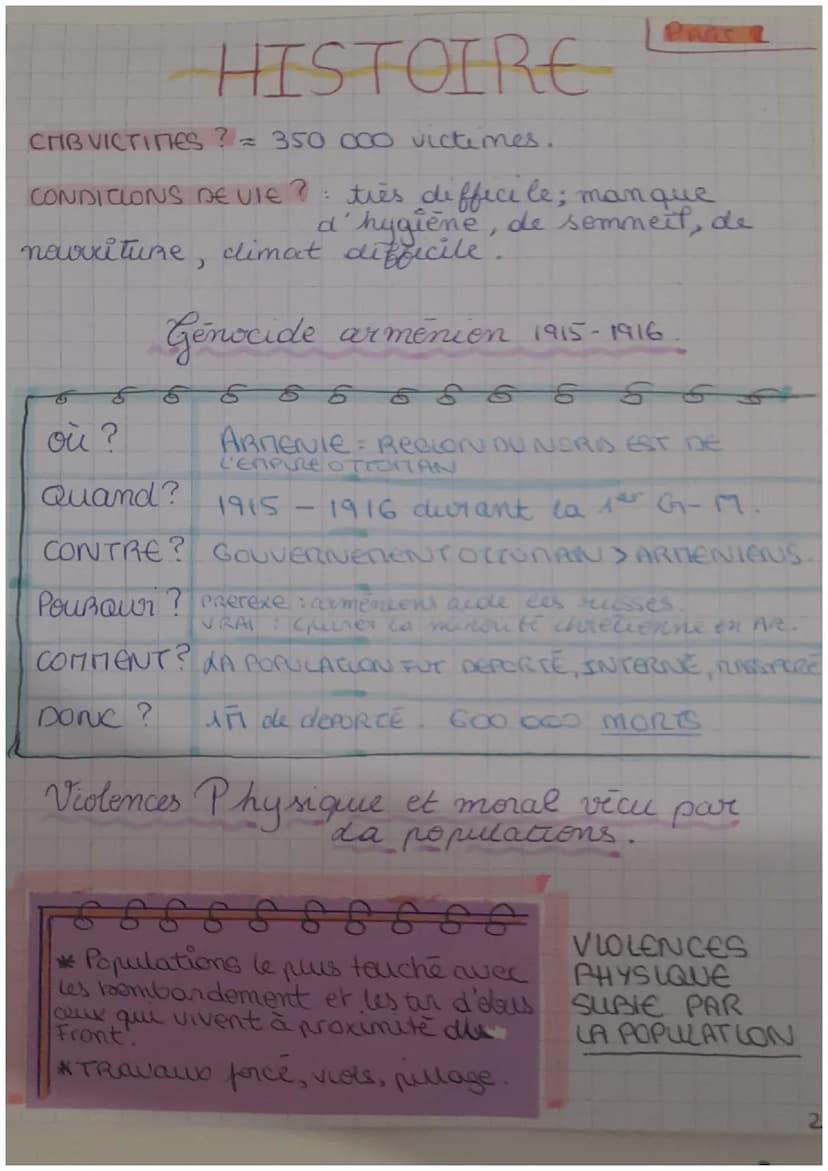 PAGE 2
HISTOIRE
CMB VICTIMES ? = 350 000 victimes.
CONDITIONS DE VIE ? : très difficile ; manque
d'hygiène, de sommeil, de
nourriture, climat difficile.
Génocide arménien 1915 - 1916.
OÙ ? ARMENIE : REGION DU NORD EST DE
L'EMPIRE OTTOMAN
Quand? 1915 - 1916 durant la 1er G-M.
CONTRE ? GOUVERNEMENT OTTOMAN > ARMENIENS.
POURQUOI ? PRETEXE : arméniens aide les russes.
VRAI : la minorité chrétienne en AR.
COMMENT ? LA POPULATION FUT DEPORTÉ, INTERNÉ, MASSACRÉ
DONC ? 1M de DEPORTÉ. 600 000 MORTS
Violences Physique et moral vécu par
la populations.
* Populations le plus touché avec
les bombardement et les tir d'obus
ceux qui vivent à proximité du
Front.
* TRAVAUX forcé, viols, pillage.
VIOLENCES
PHYSIQUE
SUBIE PAR
LA POPULATION
2